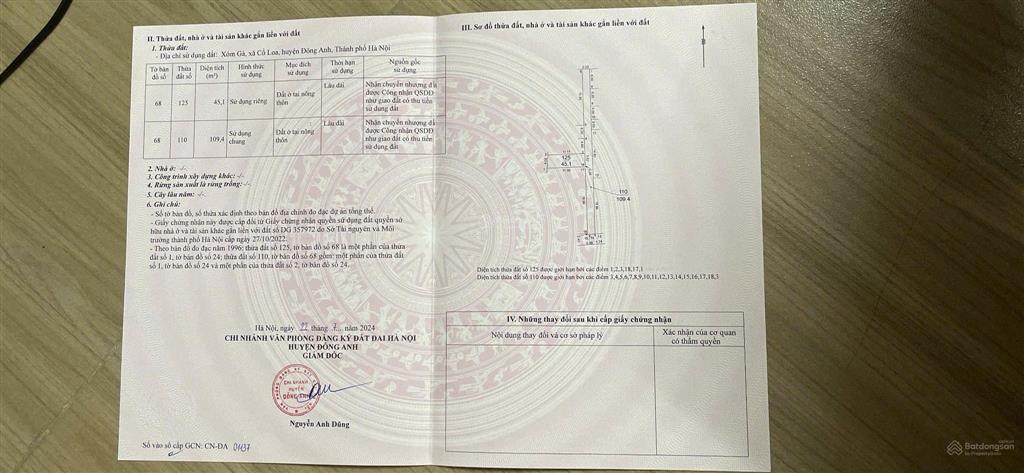 II. Thửa đất, nhà ở và tài sản khác gắn liền với đất
1. Thửa đất:
- Địa chỉ sử dụng đất: Xóm Gà, xã Cổ Loa, huyện Đông Anh, Thành phố Hà Nội
Tờ bản đồ số
Thửa đất số
Diện tích (m²)
Hình thức sử dụng
Mục đích sử dụng
Thời hạn sử dụng
Nguồn gốc sử dụng
68
125
45,1
Sử dụng riêng
Đất ở tại nông thôn
Lâu dài
Nhận chuyển nhượng đã
được Công nhận QSDĐ
như giao đất có thu tiền
sử dụng đất
68
110
109,4
Sử dụng chung
Đất ở tại nông thôn
Lâu dài
Nhận chuyển nhượng đã
được Công nhận QSDĐ
như giao đất có thu tiền
sử dụng đất
2. Nhà ở: -/-
3. Công trình xây dựng khác: -/-
4. Rừng sản xuất là rừng trồng:-/-
5. Cây lâu năm: -/-
6. Ghi chú:
- Số tờ bản đồ, số thửa xác định theo bản đồ địa chính đo đạc dự án tổng thể.
- Giấy chứng nhận này được cấp đổi từ Giấy chứng nhận quyền sử dụng đất quyền sở
hữu nhà ở và tài sản khác gắn liền với đất số DG 357972 do Sở Tài nguyên và Môi
trường thành phố Hà Nội cấp ngày 27/10/2022.
- Theo bản đồ đo đạc năm 1996: thửa đất số 125, tờ bản đồ số 68 là một phần của thửa
đất số 1, tờ bản đồ số 24; thửa đất số 110, tờ bản đồ số 68 gồm: một phần của thửa đất
số 1, tờ bản đồ số 24 và một phần của thửa đất số 2, tờ bản đồ số 24.
Hà Nội, ngày 22 tháng 7 năm 2024
CHI NHÁNH VĂN PHÒNG ĐĂNG KÝ ĐẤT ĐAI HÀ NỘI
HUYỆN ĐÔNG ANH
GIÁM ĐỐC
CHI NHÁNH
HUYỆN
ĐÔNG ANH
Nguyễn Anh Dũng
Số vào sổ cấp GCN: CN-ĐA 01137
III. Sơ đồ thửa đất, nhà ở và tài sản khác gắn liền với đất
B
125
45.1
110
109.4
Diện tích thửa đất số 125 được giới hạn bởi các điểm 1,2,3,18,17,1
Diện tích thửa đất số 110 được giới hạn bởi các điểm 3,4,5,6,7,8,9,10,11,12,13,14,15,16,17,18,3
IV. Những thay đổi sau khi cấp giấy chứng nhận
Nội dung thay đổi và cơ sở pháp lý
Xác nhận của cơ quan
có thẩm quyền
Batdongsan
by PropertyGuru